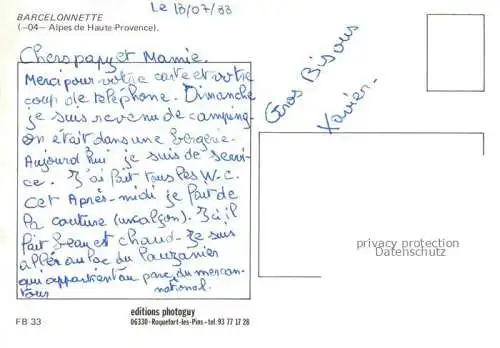 BARCELONNETTE
(-04- Alpes de Haute-Provence).
Le 13/07/83
Chers papy et Mamie.
Merci pour votre carte et votre
coup de téléphone. Dimanche
je suis revenu de camping
on était dans une bergerie.
Aujourd'hui je suis de servi-
ce. J'ai fait tous les W.C.
Cet Après-midi je fait de
la couture (un calçon). Ici il
fait beau et chaud. Je suis
aller au lac du Lauzanier
qui appartient au parc du mercan-
tour national.
Gros Bisous
Xavier.
privacy protection
Datenschutz
editions photoguy
06330-Roquefort-les-Pins-tel.93 77 17 28
FB 33